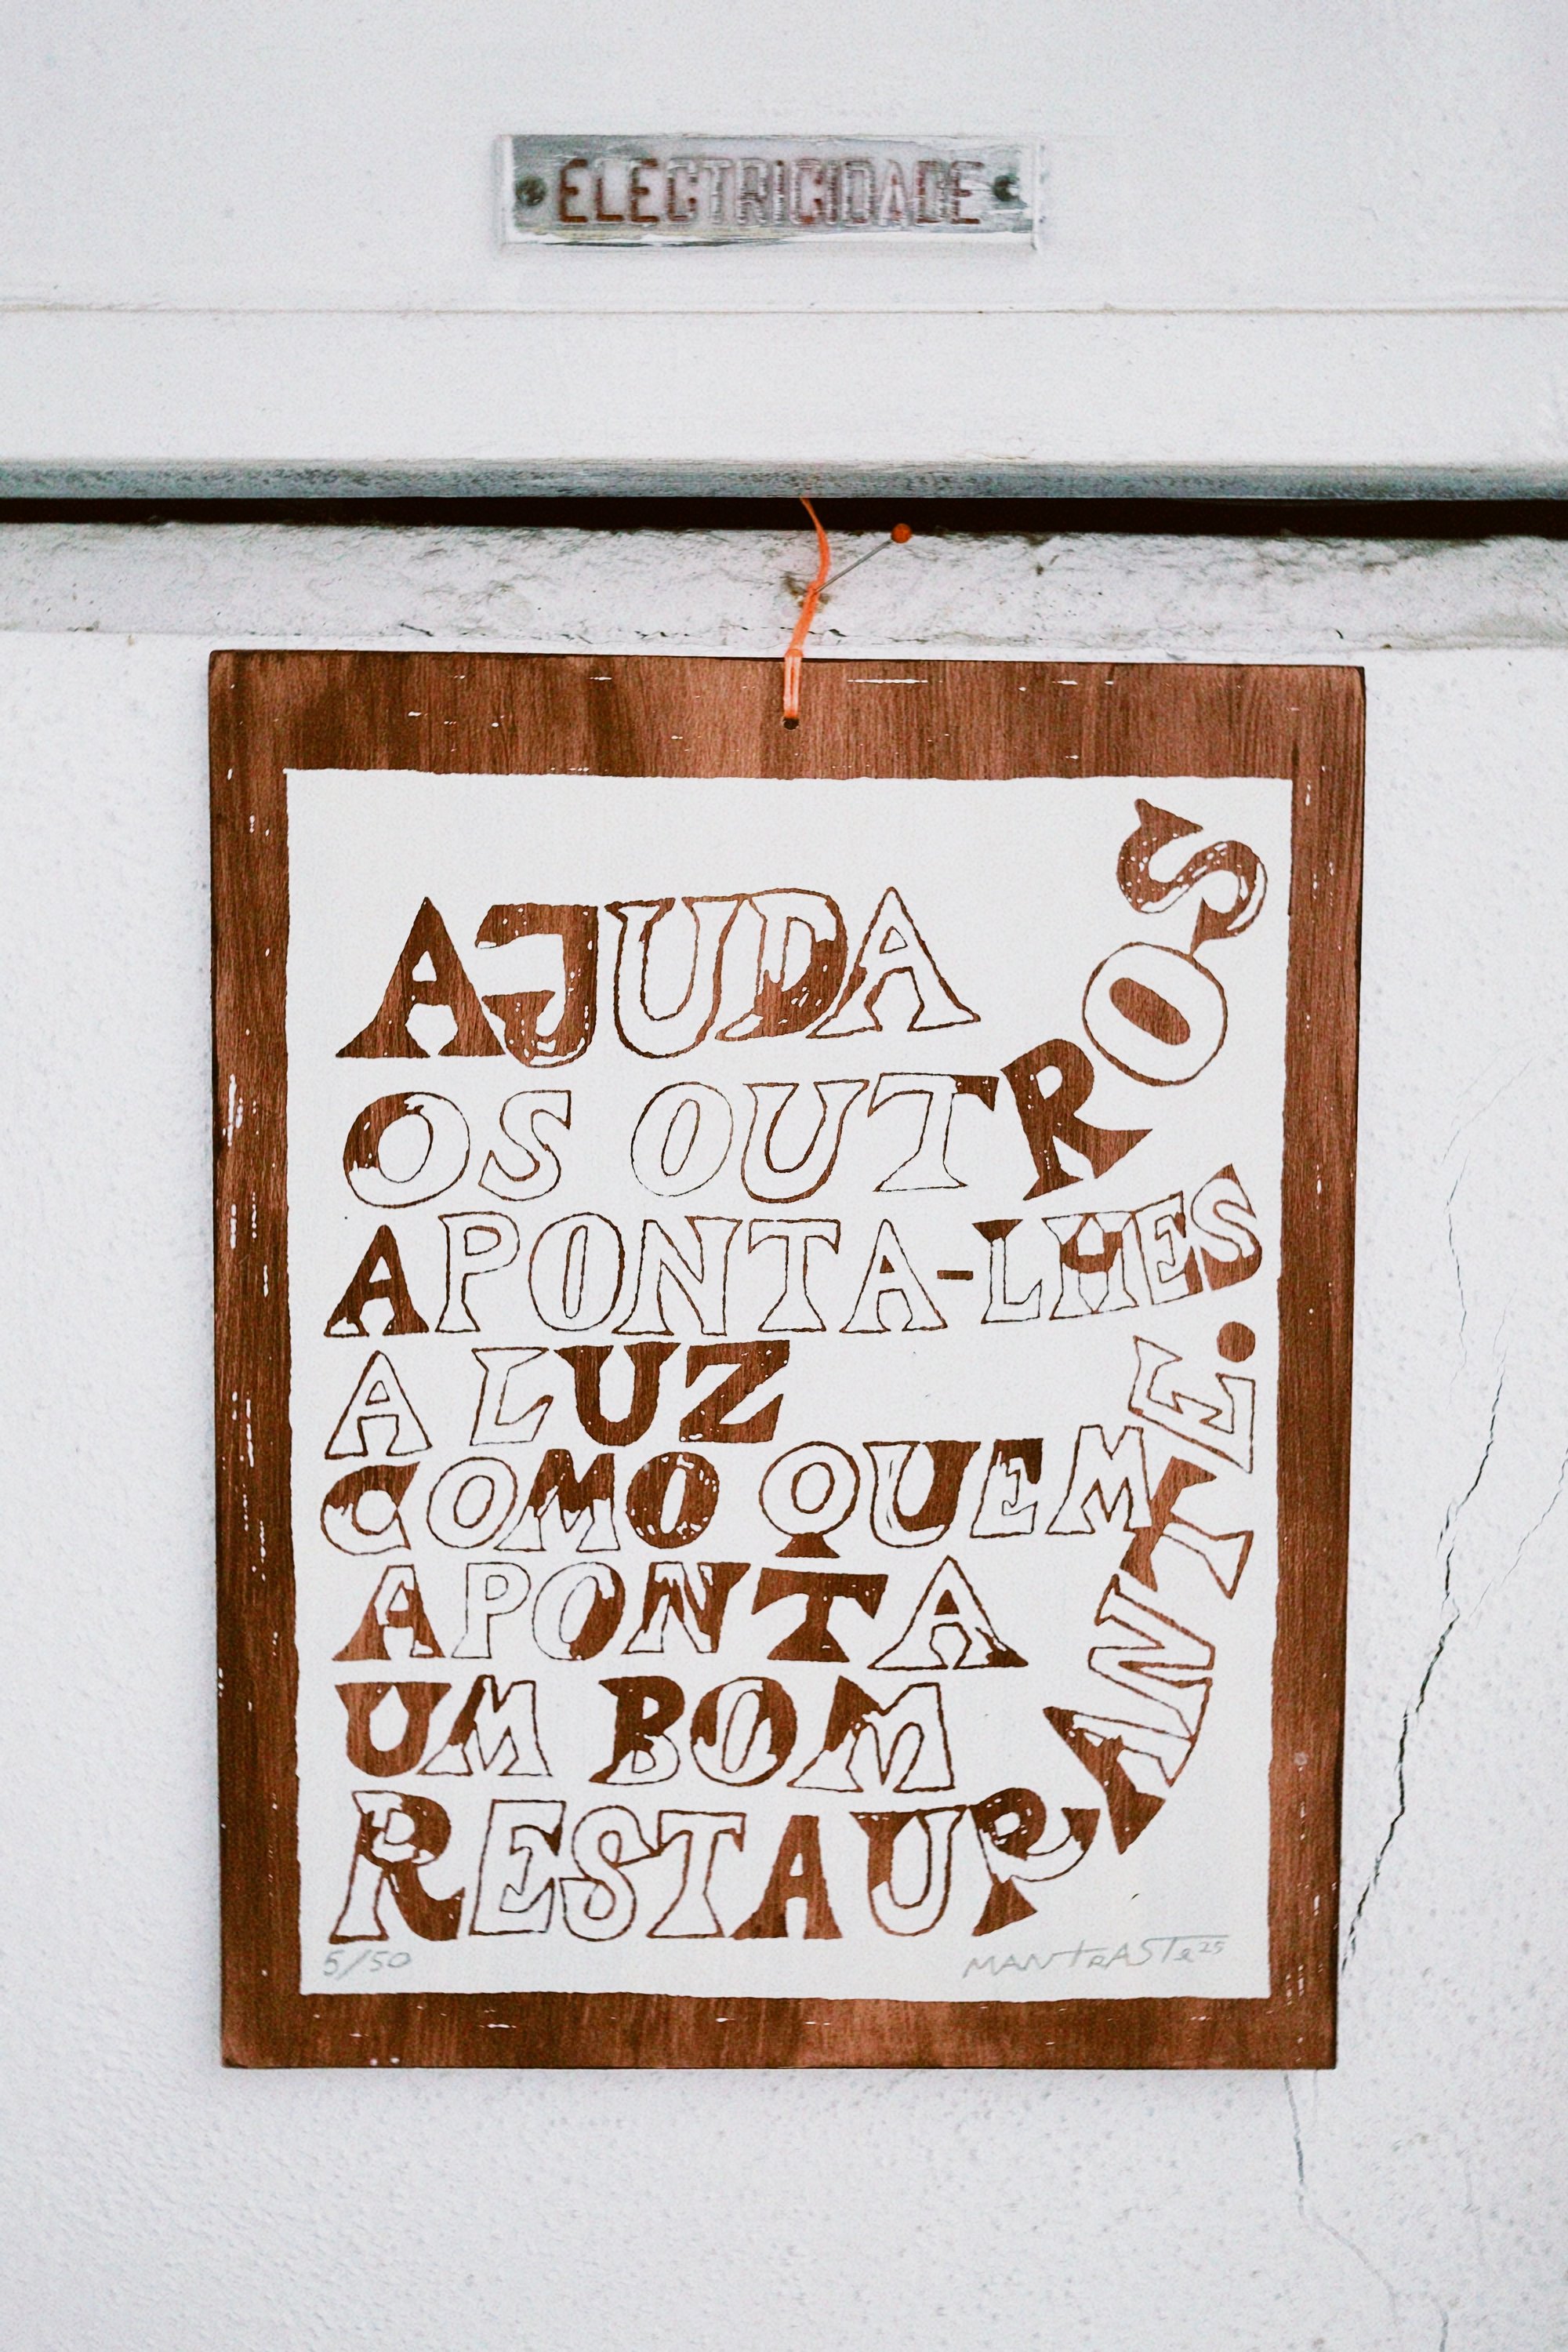 ELECTRICIDADE
AJUDA
OS OUTROS
APONTA-LHES
A LUZ
COMO QUEM
APONTA
UM BOM
RESTAURANTE.
5/50
MANTRASTE 25